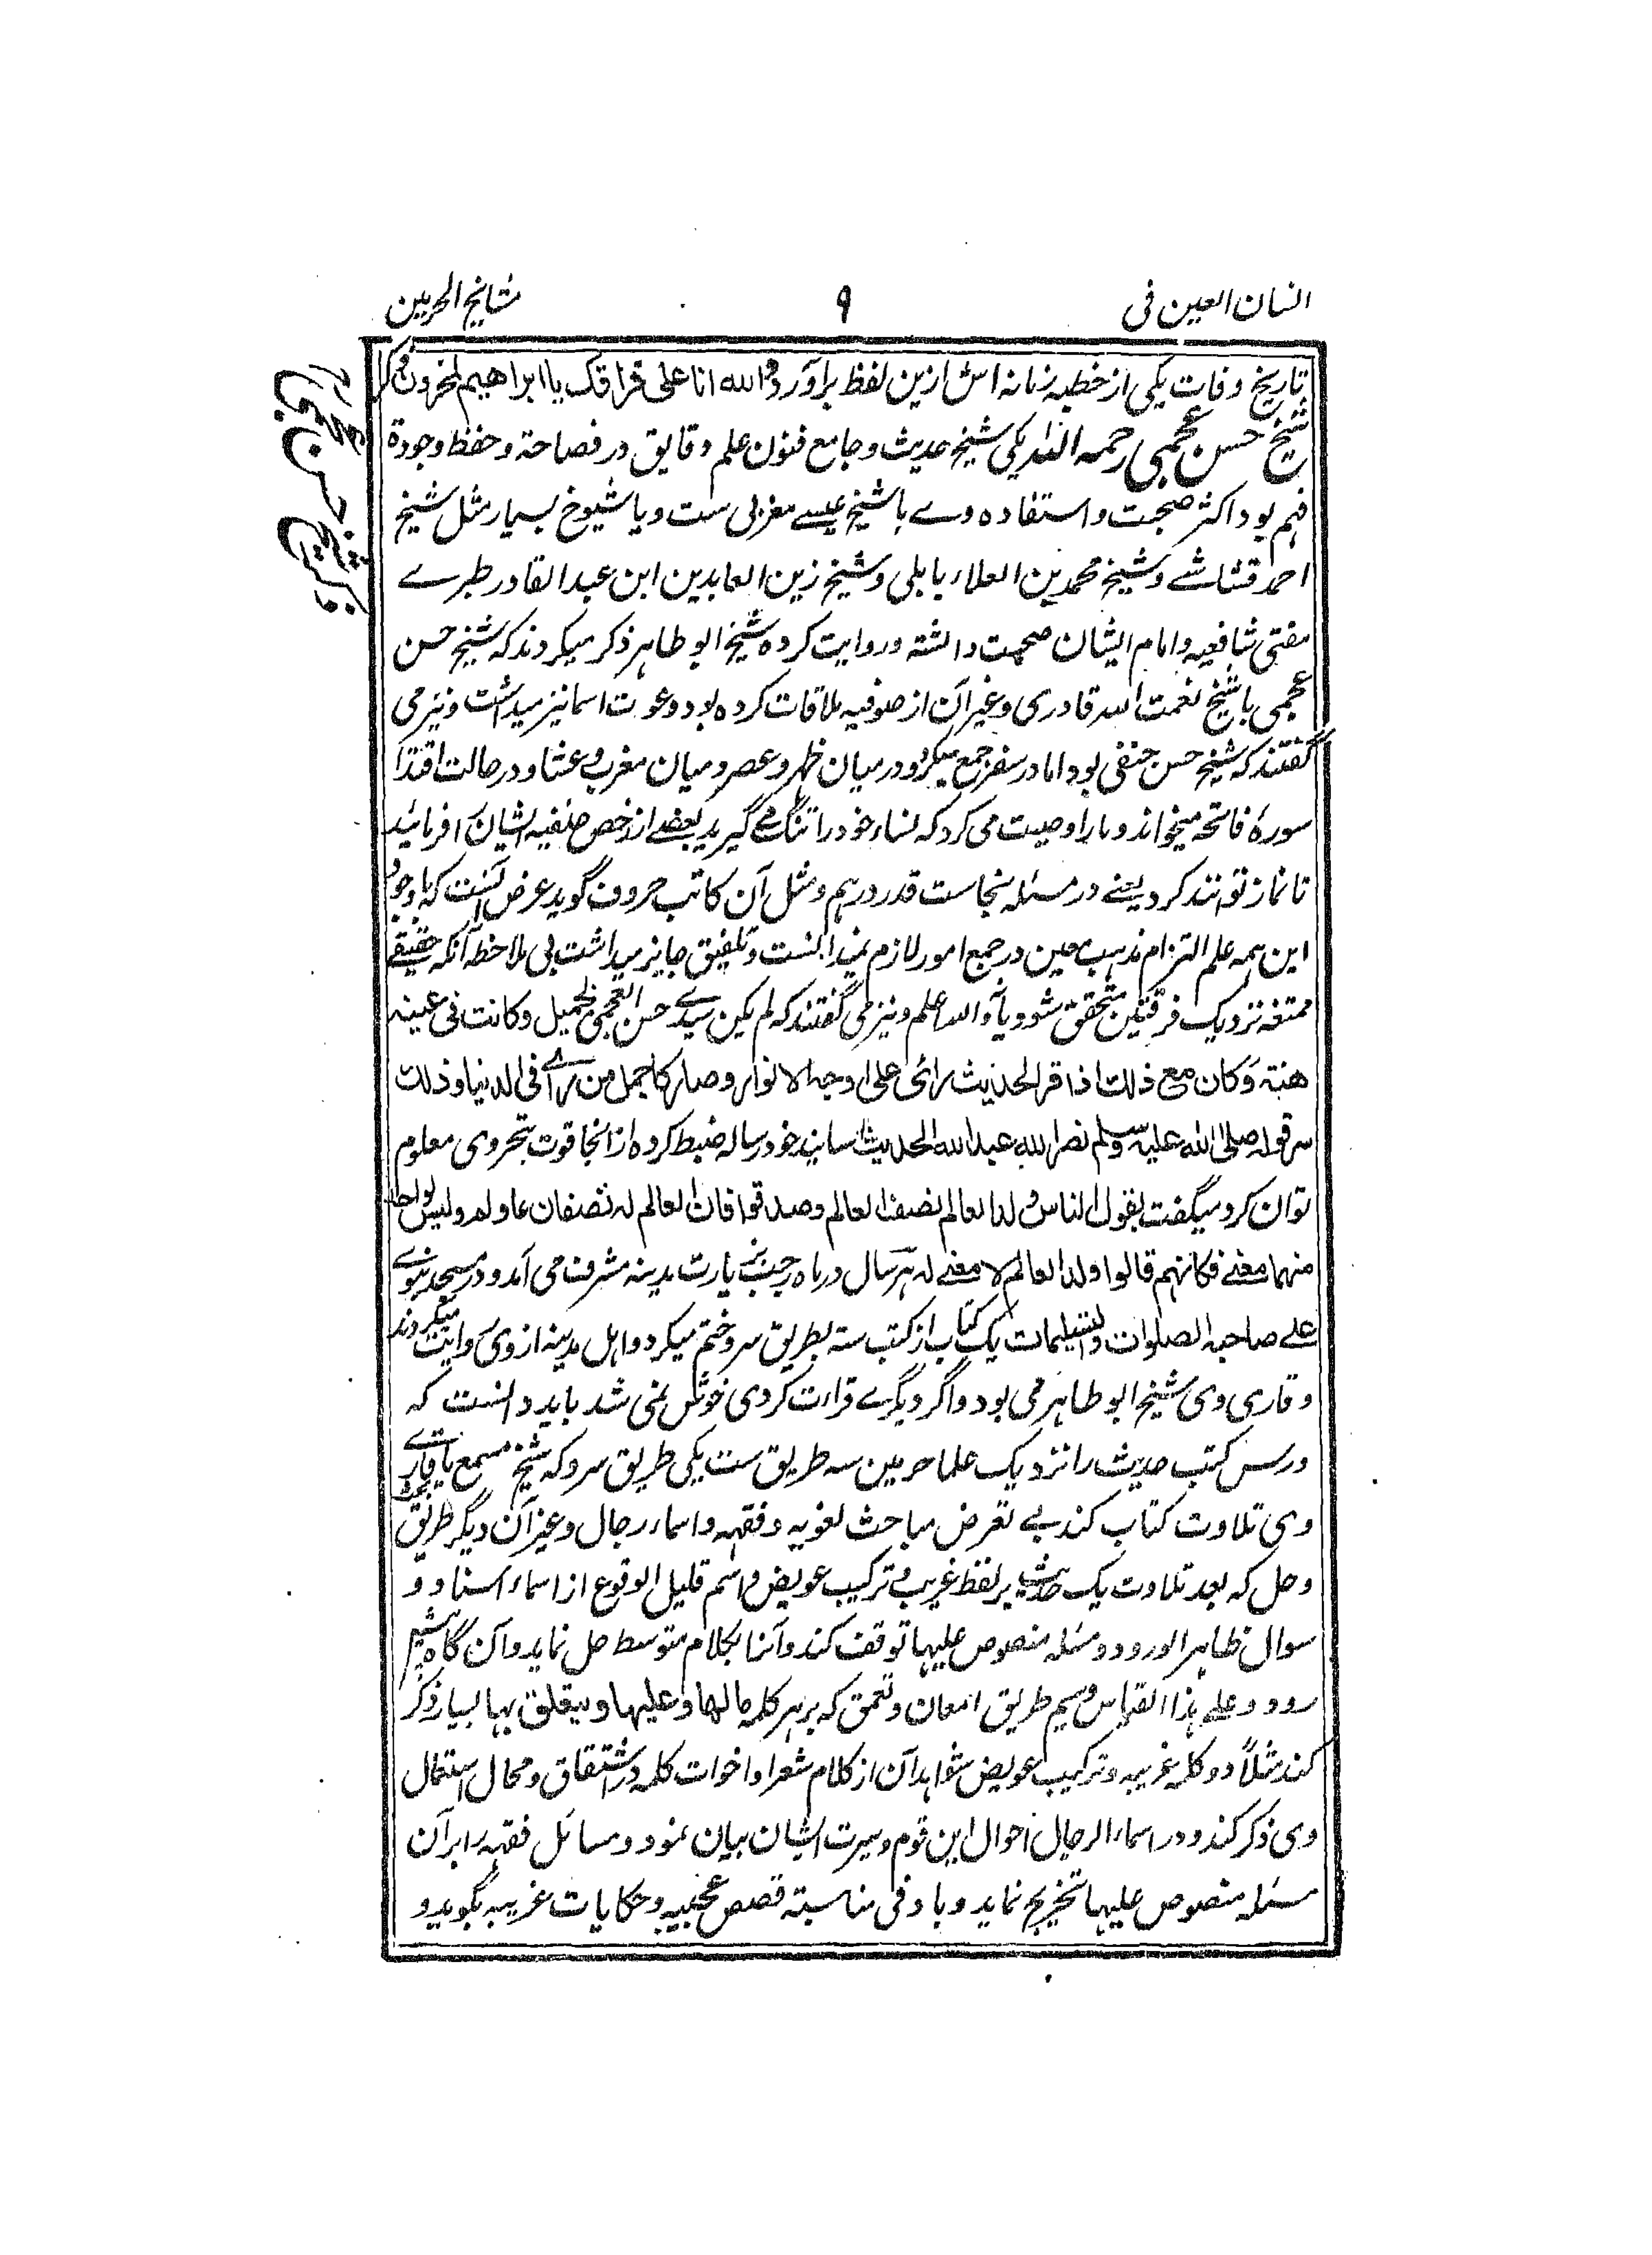 انسان العین فی ۹ مشایخ الحرمین
تاریخ وفات یکی از خطبہ زمانہ اش ازین لفظ برآوردہ واللہ انا علی فراقک یا ابراھیم لمحزونون ذکر
شیخ حسن عجمی رحمہ اللہ یکی شیخ حدیث و جامع فنون علم و قایق در فصاحة و حفظ و جودة
فہم بود اکثر صحبت و استفادہ وے با شیخ عیسے مغربی ست و با شیوخ بسیار مثل شیخ
احمد قشاشے و شیخ محمد بن العلاء بابلی و شیخ زین العابدین ابن عبد القادر طبرے
مفتی شافعیہ و امام ایشان صحبت داشتہ و روایت کردہ شیخ ابو طاہر ذکر میکردند کہ شیخ حسن
عجمی با شیخ نعمت اللہ قادری و غیر آن از صوفیہ ملاقات کردہ بود دعوت اسما نیز میدانست و نیز می
گفتند کہ شیخ حسن حنفی بود اما در سفر جمع میکرد در میان ظہر و عصر و میان مغرب و عشا و در حالت اقتدا
سورۂ فاتحہ میخواند و مارا وصیت می کرد کہ نساء خود را تنگ مے گیرید بعضے از رخص حنفیہ ایشان را فرمائید
تا نماز توانند کرد یعنے در مسئلہ نجاست قدر درہم و مثل آن کاتب حروف گوید عرض آنست کہ با وجود
این ہمہ علم التزام مذہب معین در جمیع امور لازم نمیدانست و تلفیق جایز میداشت بی ملاحظہ آنکہ حقیقے
ممتنعہ نزدیک فرقتین متحقق شود یا نہ واللہ اعلم و نیز می گفتند کہ لم یکن سیدے حسن العجمی بجمیل و کانت فی عینیہ
ھنتہ و کان مع ذلک اذا قرا الحدیث رائی علی وجہہ الانوار و صار کاجمل من رأے فی الدنیا و ذلک
سر قولہ صلی اللہ علیہ وسلم نضر اللہ عبدا الحدیث اسانید خود رسالہ ضبط کردہ ازانجا قوت تبحر وی معلوم
توان کرد و میگفت یقول الناس ولد العالم نصف العالم و صدقوا فان العالم لہ نصفان عا و لم و لیس لواحد
منہما معنے فکانہم قالوا ولد العالم لا معنے لہ ہر سال در ماہ رجب بزیارت مدینہ مشرفہ می آمد و در مسجد نبوے
علے صاحبہ الصلوات والتسلیمات یک کتاب از کتب ستہ بطریق سرد ختم میکرد و اہل مدینہ از وی روایت میکردند
و قاری وی شیخ ابو طاہر می بود و اگر دیگرے قراءت کردی خوش نمی شد باید دانست کہ
درس کتب حدیث را نزدیک علما حرمین سہ طریق ست یکی طریق سرد کہ شیخ مسمع یا قارے
وی تلاوت کتاب کند بے تعرض مباحث لغویہ و فقہیہ و اسماء رجال و غیر آن دیگر طریق بحث
و حل کہ بعد تلاوت یک حدیث بر لفظ غریب و ترکیب عویض و اسم قلیل الوقوع از اسماء اسناد و
سوال ظاہر الورود و مسئلہ منصوص علیہا توقف کند و آنرا بکلام متوسط حل نماید و آن گاہ پیشتر
رود و علے ہذا القیاس سیم طریق امعان و تعمق کہ بر ہر کلمہ مالہا و علیہا و یتعلق بہا بسیار ذکر
کند مثلاً در کلمہ غریبہ و ترکیب عویض شواہد آن از کلام شعرا و اخوات کلمہ در اشتقاق و محال استعمال
وی ذکر کند و در اسماء الرجال احوال این قوم و سیرت ایشان بیان نمود و مسائل فقہیہ را بر آن
مسئلہ منصوص علیہا تخریج نماید و با دنی مناسبتہ قصص عجیبہ و حکایات غریبہ بگوید و